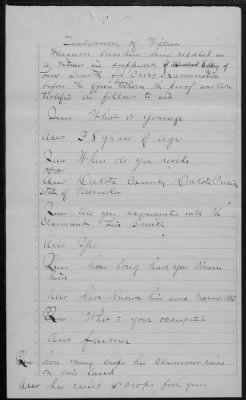 Testimony of Witness
William Sanders being called as
a witness in support of Homestead Entry of
Levi Smith for Cross Examination
before the officer before whom the proof was taken
testified as follows to wit
Ques What is your age
Ans 38 years of age
Ques Where do you reside
Ans Dakota County Dakota Precinct
State of Nebraska
Ques Are you acquainted with the
Claimant Levi Smith
Ans Yes
Ques how long have you known
him
Ans have known him since
Ques What is your occupation
Ans farmer
Ques how many crops has claimant raised
on said land
Ans he raised 5 crops five years